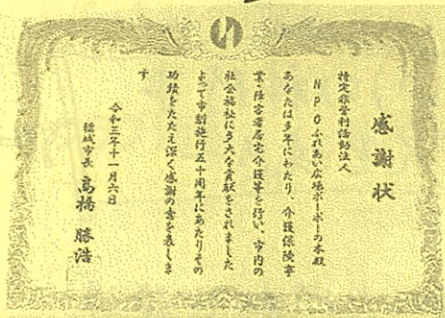 感謝状
特定非営利活動法人
NPOふれあい広場ポーポーの木殿
あなたは多年にわたり、介護保険事
業・障害者居宅介護等を行い、市内の
社会福祉に多大な貢献をされました
よって市制施行五十周年にあたりその
功績をたたえ深く感謝の意を表しま
す
令和三年十一月六日
稲城市長 高橋 勝浩